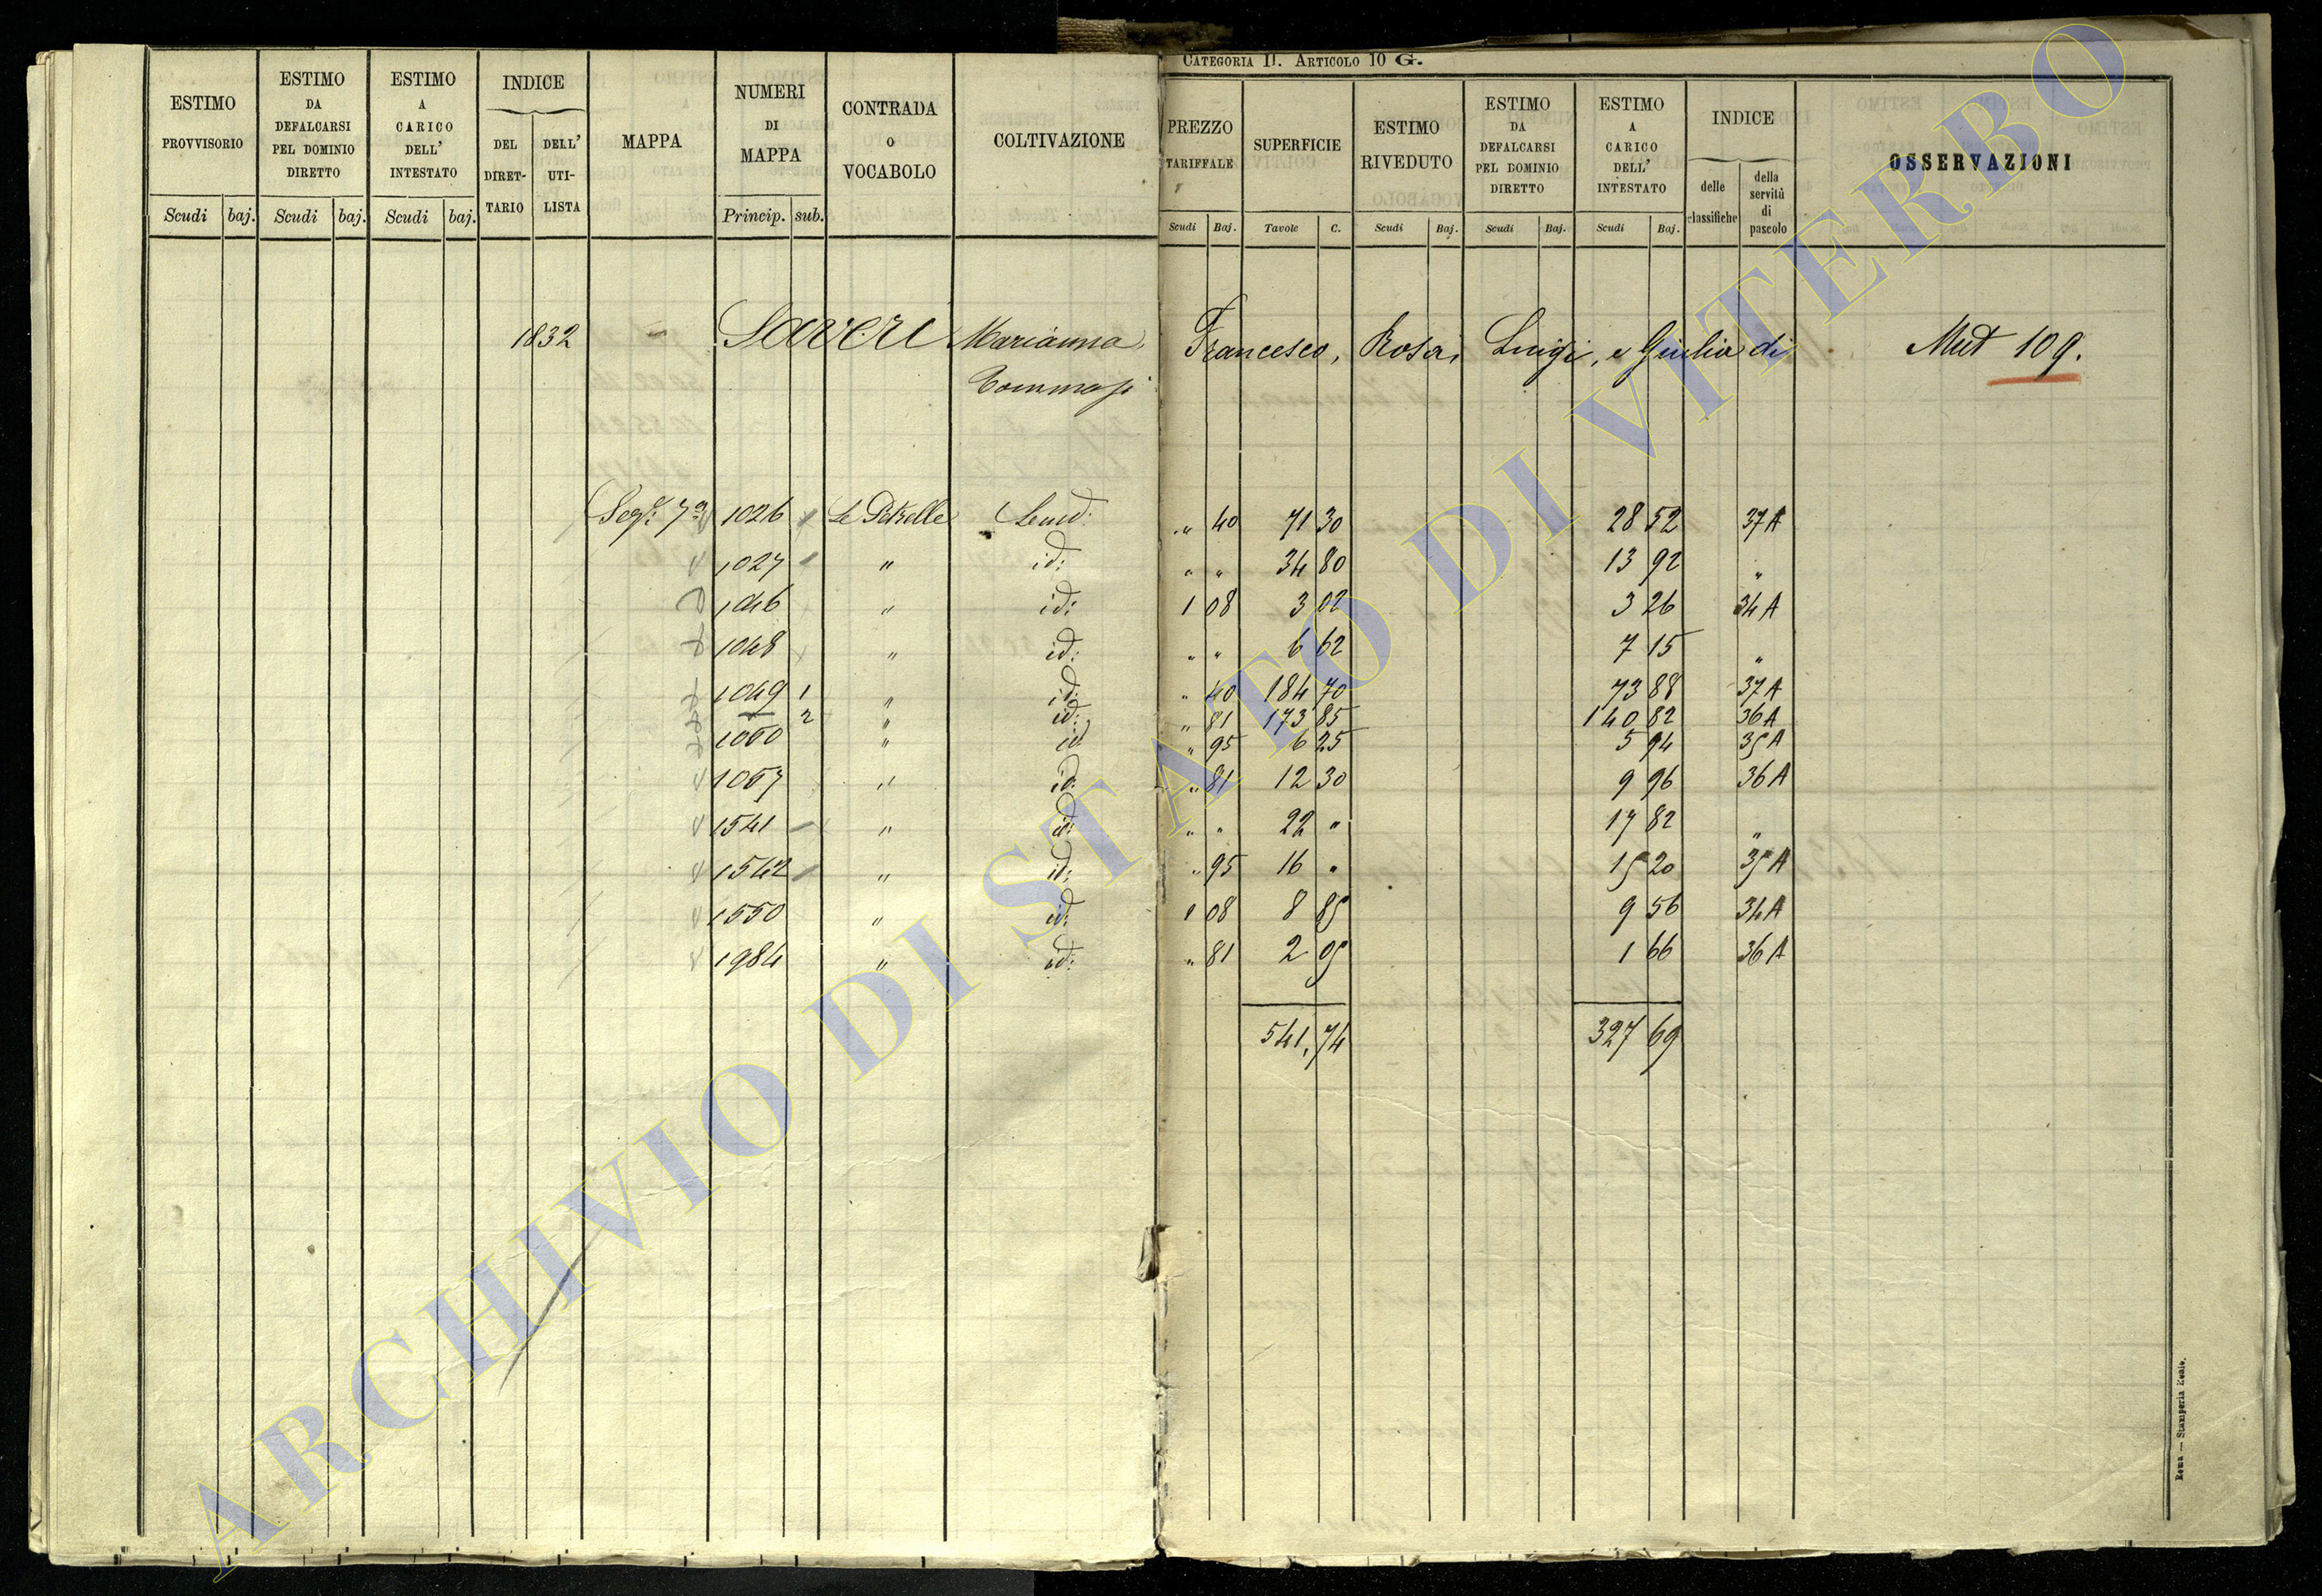 CATEGORIA II. ARTICOLO 10 G.
ESTIMO PROVVISORIO Scudi baj.
ESTIMO DA DEFALCARSI PEL DOMINIO DIRETTO Scudi baj.
ESTIMO A CARICO DELL' INTESTATO Scudi baj.
INDICE DEL DIRETTARIO DELL' UTILISTA
MAPPA
NUMERI DI MAPPA Princip. sub.
CONTRADA O VOCABOLO
COLTIVAZIONE
PREZZO TARIFFALE Scudi Baj.
SUPERFICIE Tavole C.
ESTIMO RIVEDUTO Scudi Baj.
ESTIMO DA DEFALCARSI PEL DOMINIO DIRETTO Scudi Baj.
ESTIMO A CARICO DELL' INTESTATO Scudi Baj.
INDICE delle classifiche della servitù di pascolo
OSSERVAZIONI
1832 Saveri Marianna, Francesco, Rosa, Luigi, e Giulia di Mut 109.
Tommaso
Sez.e 7a 1026 Le Petrelle Semd: " 40 71 30 28 52 37 A
1027 " id: " " 34 80 13 92 "
1046 " id: 1 08 3 02 3 26 34 A
1048 " id: " " 6 62 7 15 "
1049 1 " id: " 40 184 70 73 88 37 A
2 " id: " 81 173 85 140 82 36 A
1050 " id " 95 6 25 5 94 35 A
1057 " id: " 81 12 30 9 96 36 A
1541 " id: " " 22 " 17 82 "
1542 " id: " 95 16 " 15 20 35 A
1550 " id: 1 08 8 85 9 56 34 A
1984 " id: " 81 2 05 1 66 36 A
541,74 327 69
Roma — Stamperia Reale.
ARCHIVIO DI STATO DI VITERBO